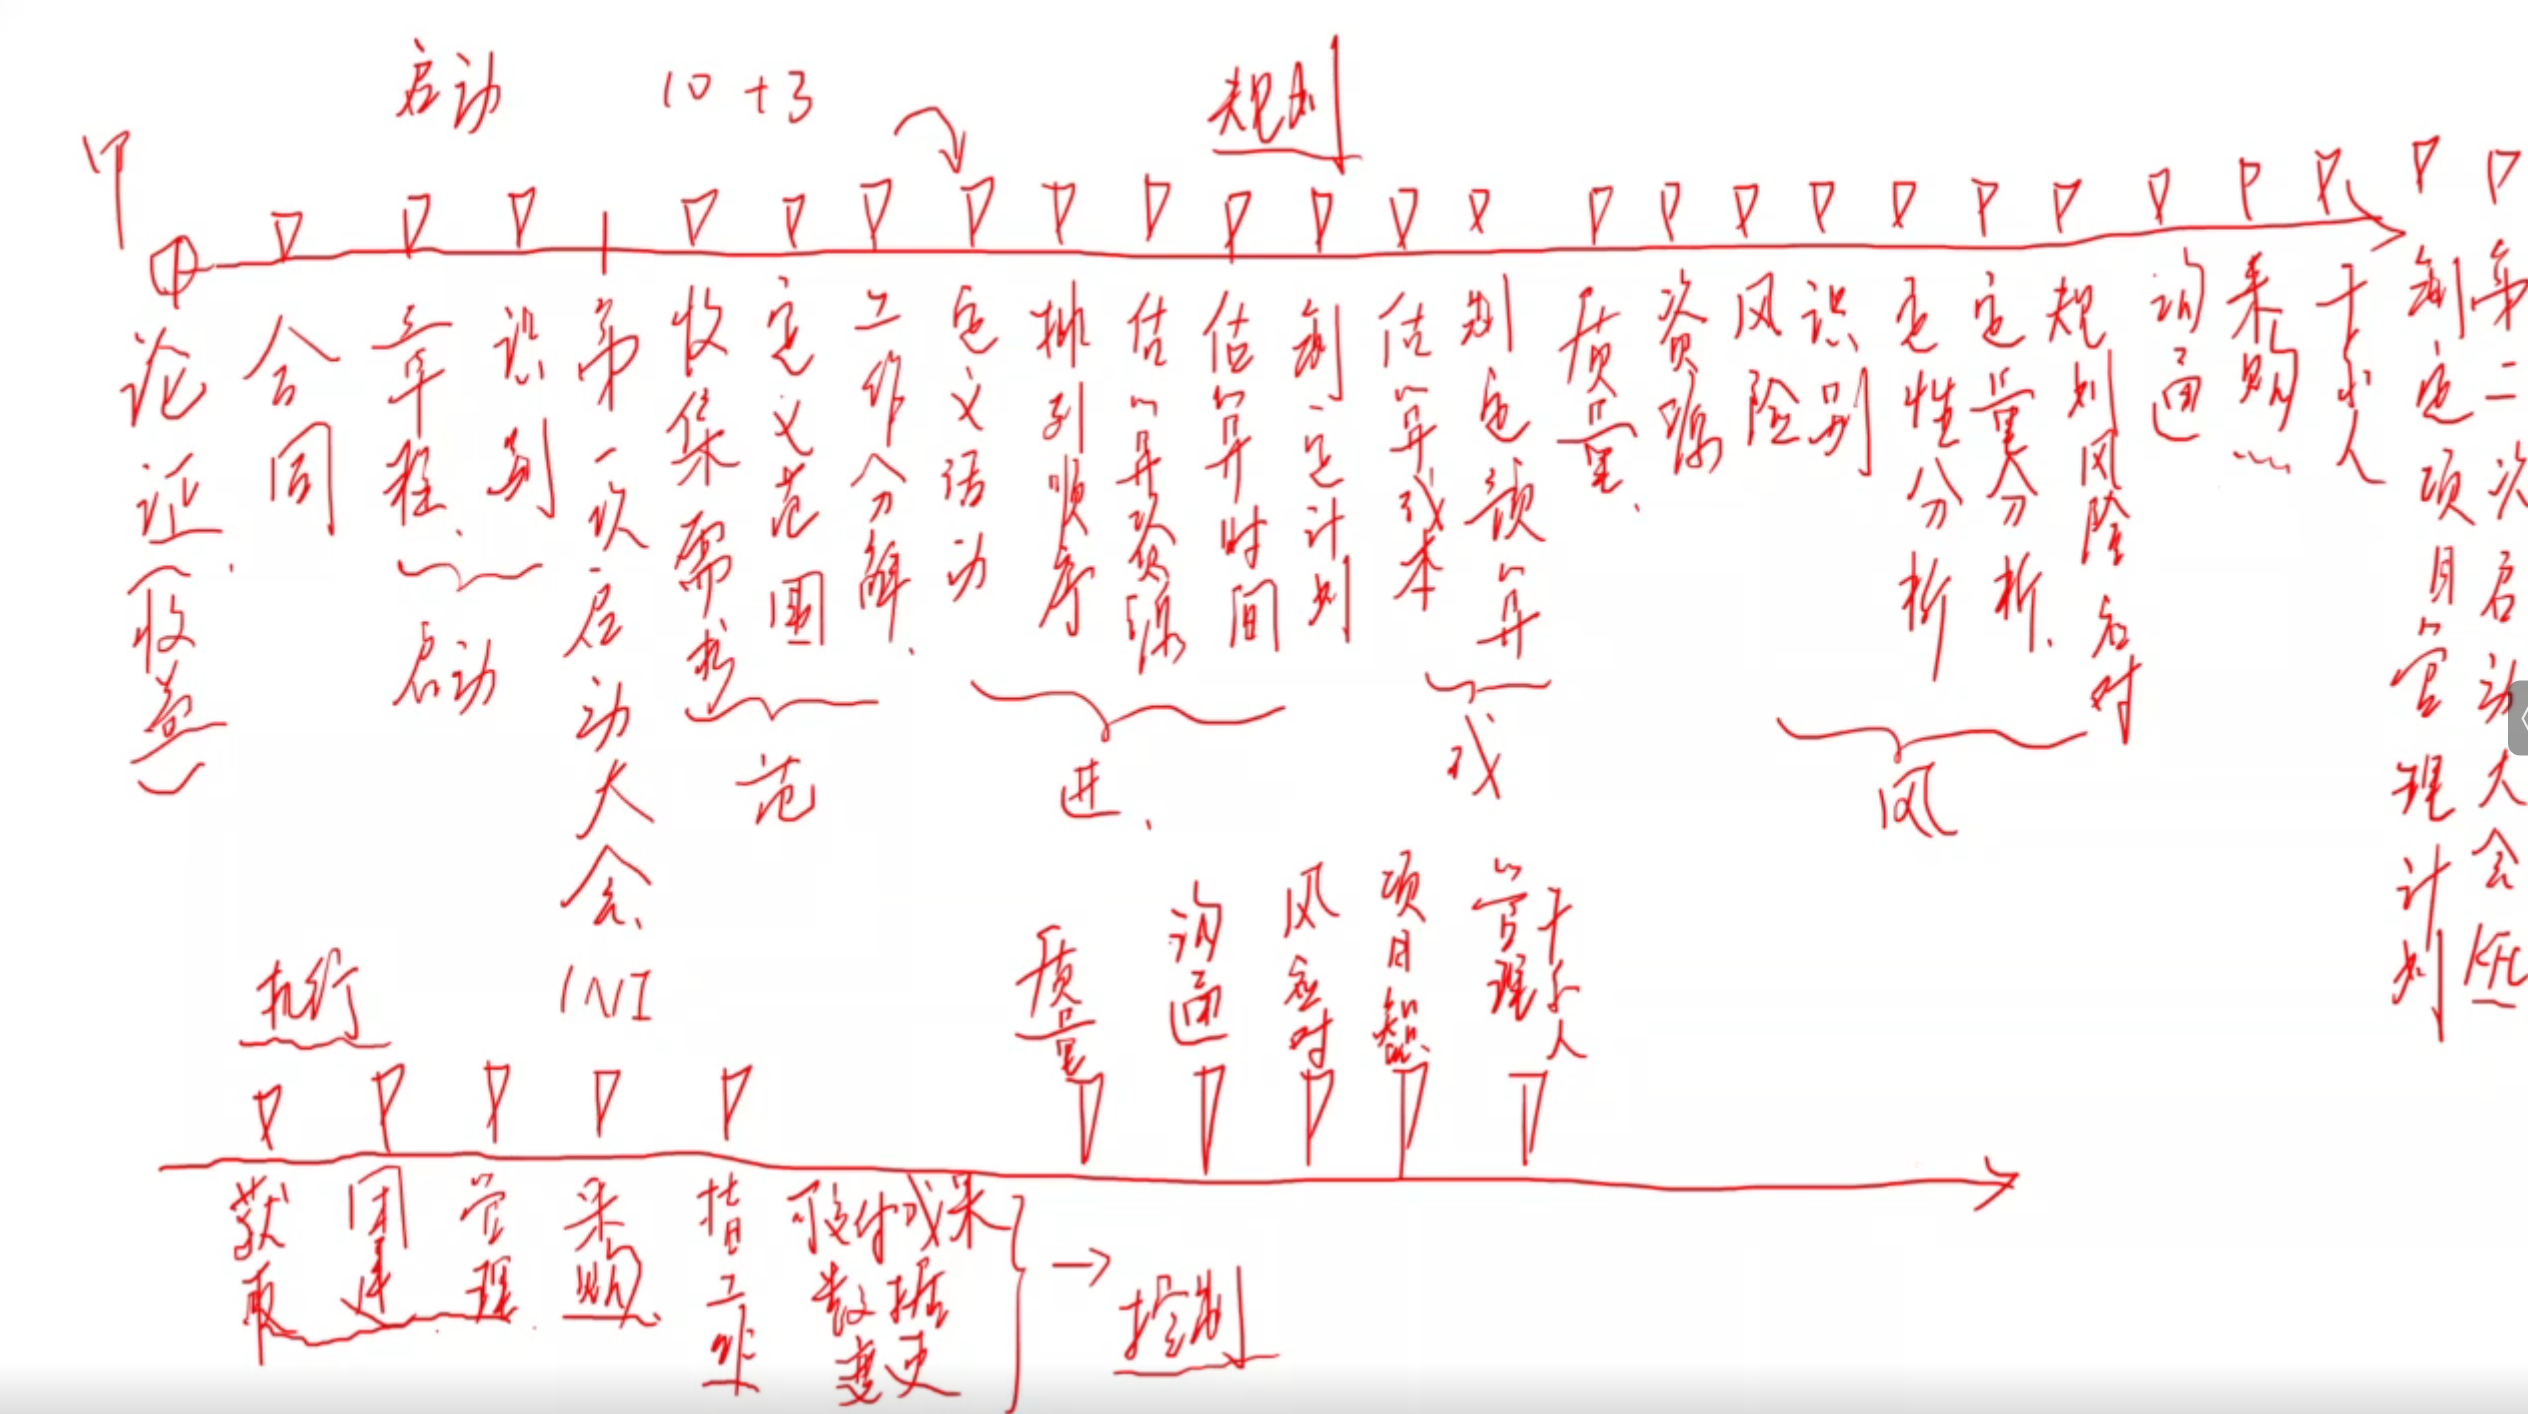 启动
10+3
规划
甲
论证(收益)
合同
章程
识别
启动
第一次启动大会
INI
收集需求
定义范围
工作分解
范
定义活动
排列顺序
估算资源
估算时间
制定计划
进
估算成本
制定预算
成
质量
资源
风险
识别
定性分析
定量分析
规划风险应对
风
沟通
采购
干系人
制定项目管理计划
第二次启动大会
执行
获取
团建
管理
采购
指工作
可交付成果
数据
变更
控制
质量
沟通
风应对
项目知
管理干系人